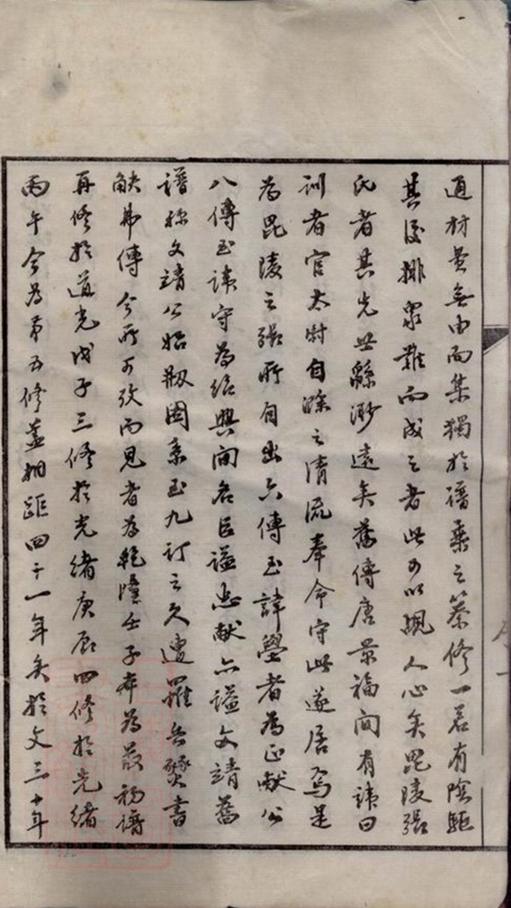 通材莫無由而集獨於譜乘之纂修一若有陰驅
其後排眾難而成之者此可以覘人心矣毘陵張
氏者其先世緜渺遠矣舊傳唐景福間有諱曰
訓者官太尉自滁之清流奉命守此遂居焉是
為毘陵之張所自出六傳至諱學者為正獻公
八傳至諱守為紹興間名臣諡忠獻亦諡文靖舊
譜稱文靖公始剏圖系至九訂之久遭罹兵燹書
缺弗傳今所可攷而見者為乾隆壬子本為最初譜
再修於道光戊子三修於光緒庚辰四修於光緒
丙午今為第五修蓋相距四十一年矣於文三十年